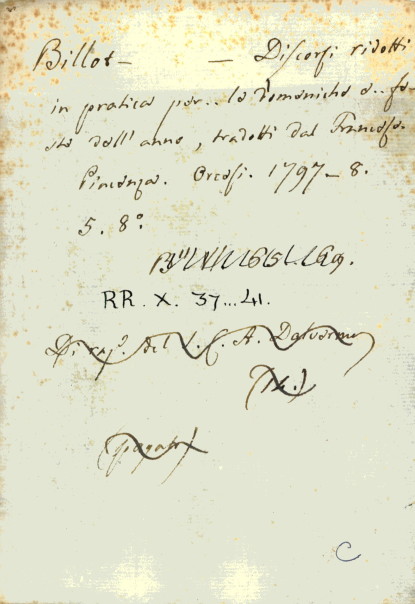 Billot — — Discorsi ridotti
in pratica per.. le Domeniche e.. fe-
ste dell'anno, tradotti dal Francese.
Piacenza. Orcesi. 1797–8.
5. 8º.
RR. X. 37...41.
A. Dalverme
(pagato)
C